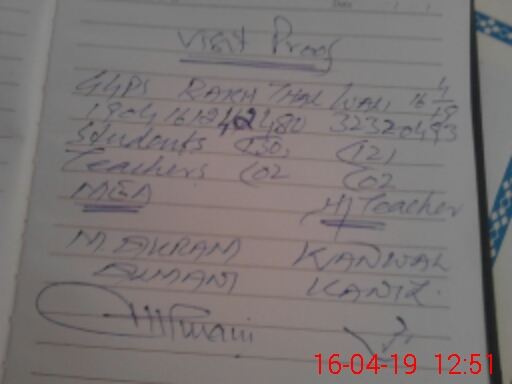 Visit Proof
GGPS RAKH THAL WALI 16/4/19
32320493
Students (30, (21,
Teachers (02 (02
MEA H/Teacher
M AKRAM KANWAL
KANIZ.
16-04-19 12:51